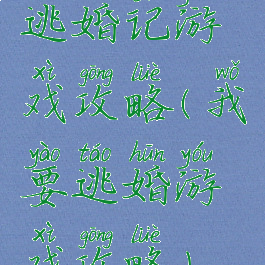 逃婚记游
xì gōng lüè wǒ
戏攻略(我
yào táo hūn yóu
要逃婚游
xì gōng lüè
戏攻略)